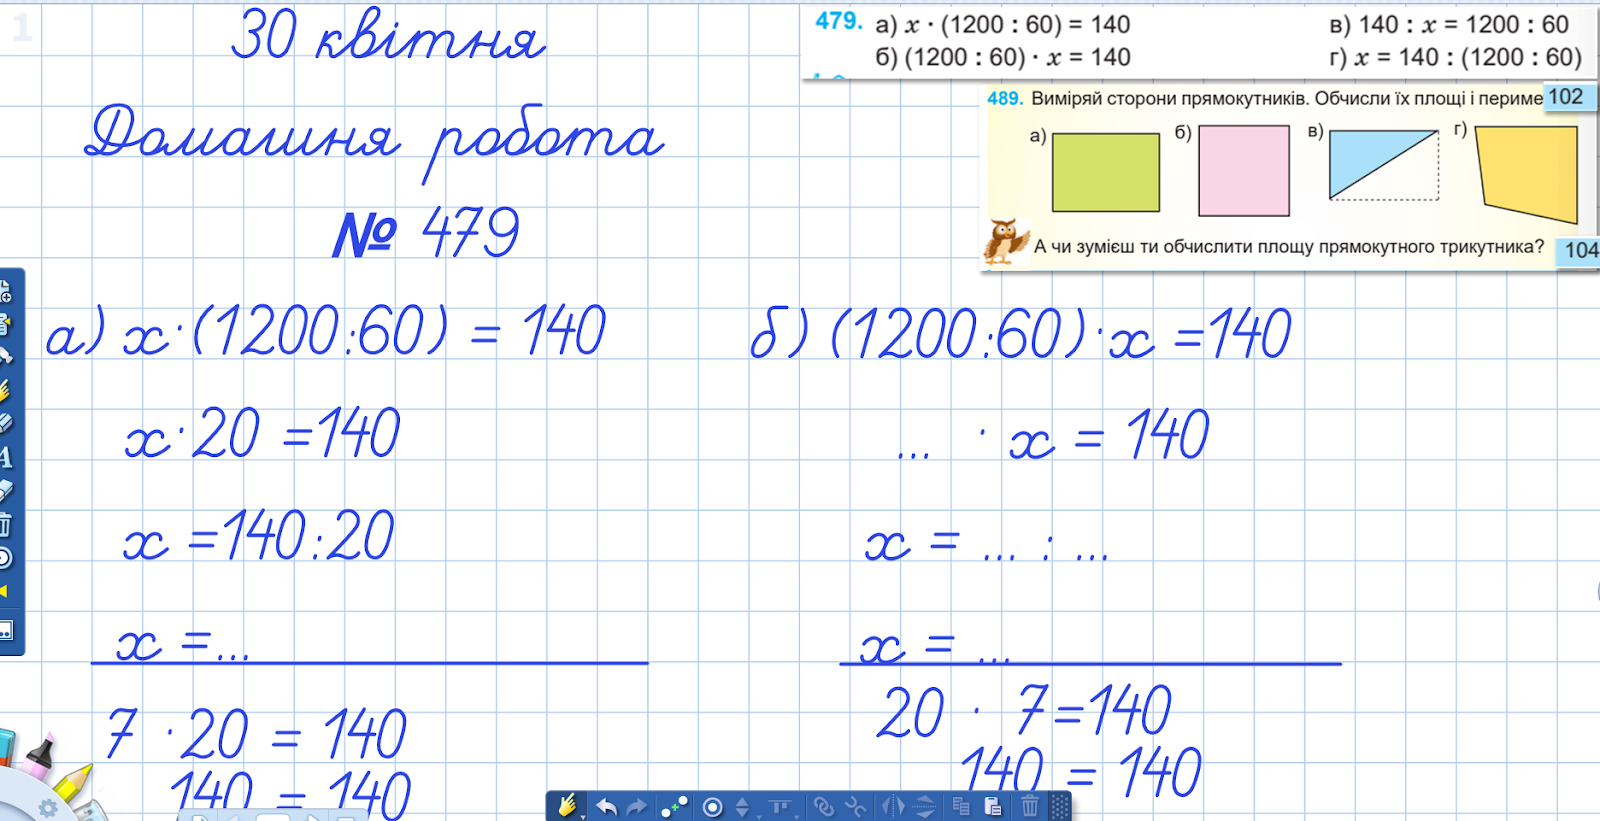 1
30 квітня
Домашня робота
№ 479
479. а) x · (1200 : 60) = 140
в) 140 : x = 1200 : 60
б) (1200 : 60) · x = 140
г) x = 140 : (1200 : 60)
489. Виміряй сторони прямокутників. Обчисли їх площі і периме
102
а)
б)
в)
г)
А чи зумієш ти обчислити площу прямокутного трикутника?
104
а) x·(1200:60) = 140
x·20 =140
x =140:20
x =...
7 ·20 = 140
140 = 140
б) (1200:60)·x =140
... · x = 140
x = ... : ...
x = ...
20 · 7=140
140 = 140